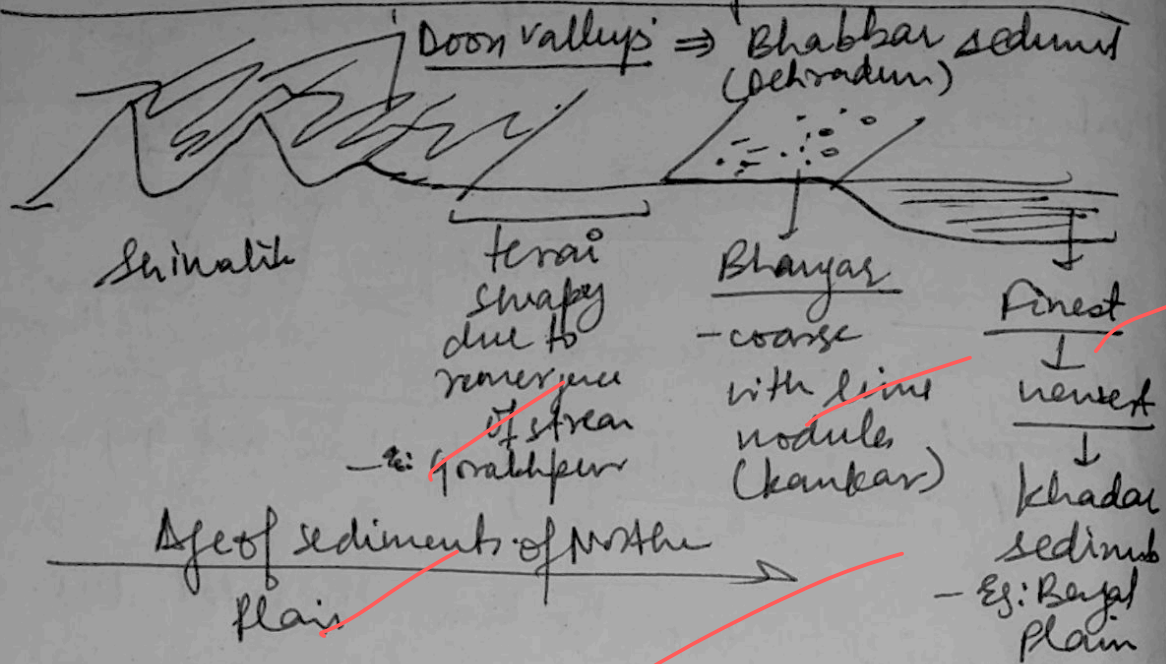 Doon valleys ⇒ Bhabbar sediment
(Dehradun)
Shiwalik
terai
swapy
due to
remergence
of strean
- Eg: Gorakhpur
Bhangar
- coarse
with lime
nodules
(kankar)
Finest
↓
newest
↓
Khadar
sediments
- Eg: Bengal
Plain
Age of sediments of Northe
Plain